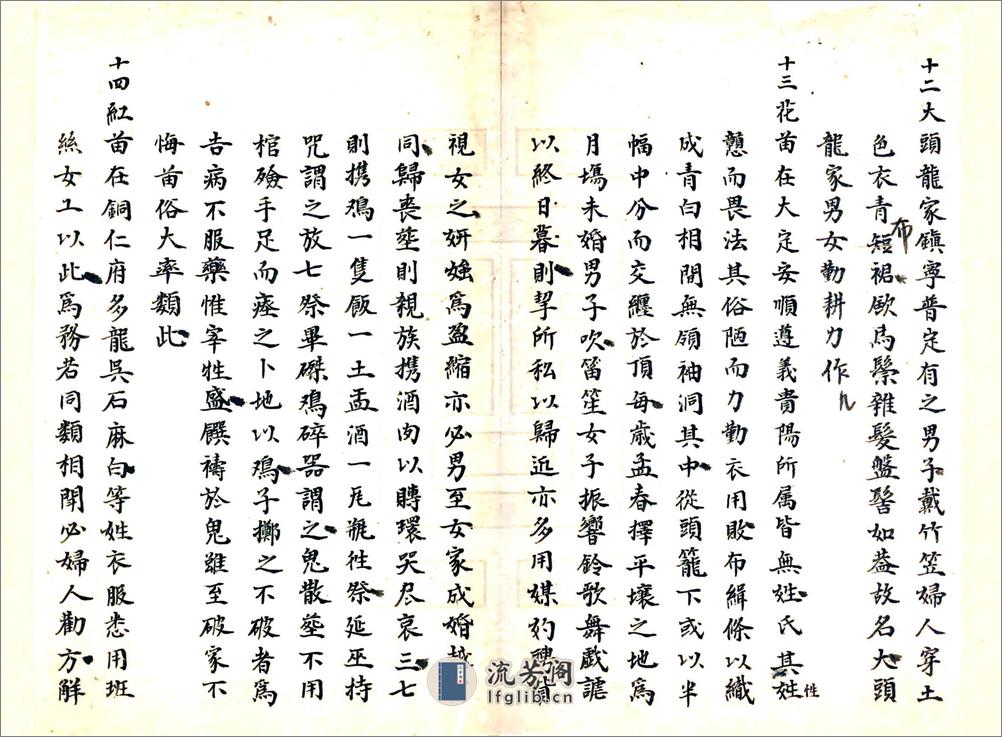 十二大頭龍家鎮寧普定有之男子戴竹笠婦人穿土
色衣青短裙歐馬鬃雜髮盤髻如葢故名大頭
布
龍家男女勤耕力作
十三花苗在大定安順遵義貴陽所属皆無姓氏其姓
性
戇而畏法其俗陋而力勤衣用敗布緝條以織
成青白相間無領袖洞其中從頭籠下或以半
幅中分而交纏於頂每歲孟春擇平壤之地為
月塲未婚男子吹笛笙女子振響鈴歌舞戲謔
以終日暮則挈所私以歸近亦多用媒妁聘
視女之妍媸為盈縮亦必男至女家成婚越
同歸喪塟則親族携酒肉以賻環哭尽哀三七
則携鴉一隻飯一土盂酒一瓦瓶徃祭延巫持
咒謂之放七祭畢磔鴉碎器謂之鬼散塟不用
棺殮手足而瘞之卜地以鴉子擲之不破者為
吉病不服藥惟宰牲盛饌禱於鬼雖至破家不
悔苗俗大率類此
十四紅苗在銅仁府多龍吳石麻白等姓衣服悉用班
絲女工以此為務若同類相鬨必婦人勸方解
流芳阁
lfglib.cn